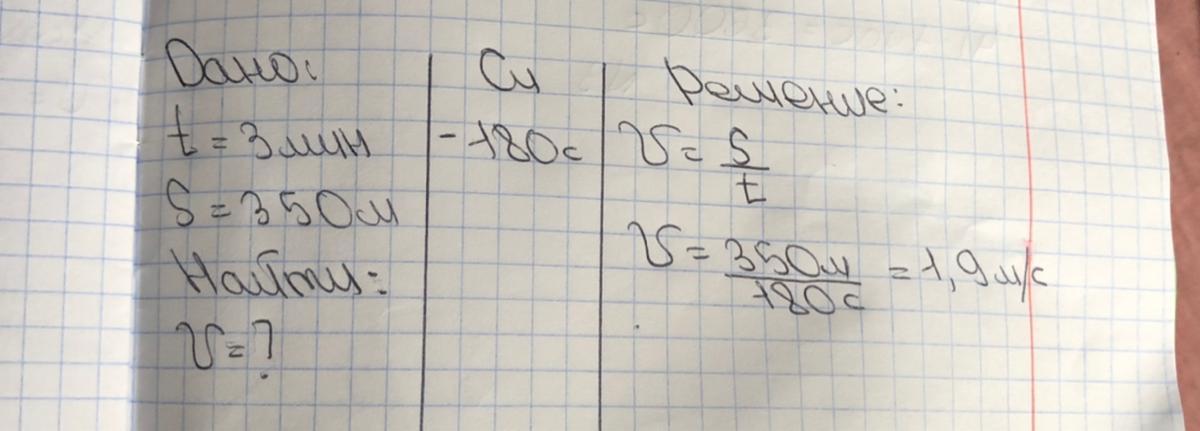 Дано:
t = 3 мин
S = 350 м
Найти:
υ = ?
Си
- 180 с
Решение:
υ = S/t
υ = 350 м/180 с = 1,9 м/с